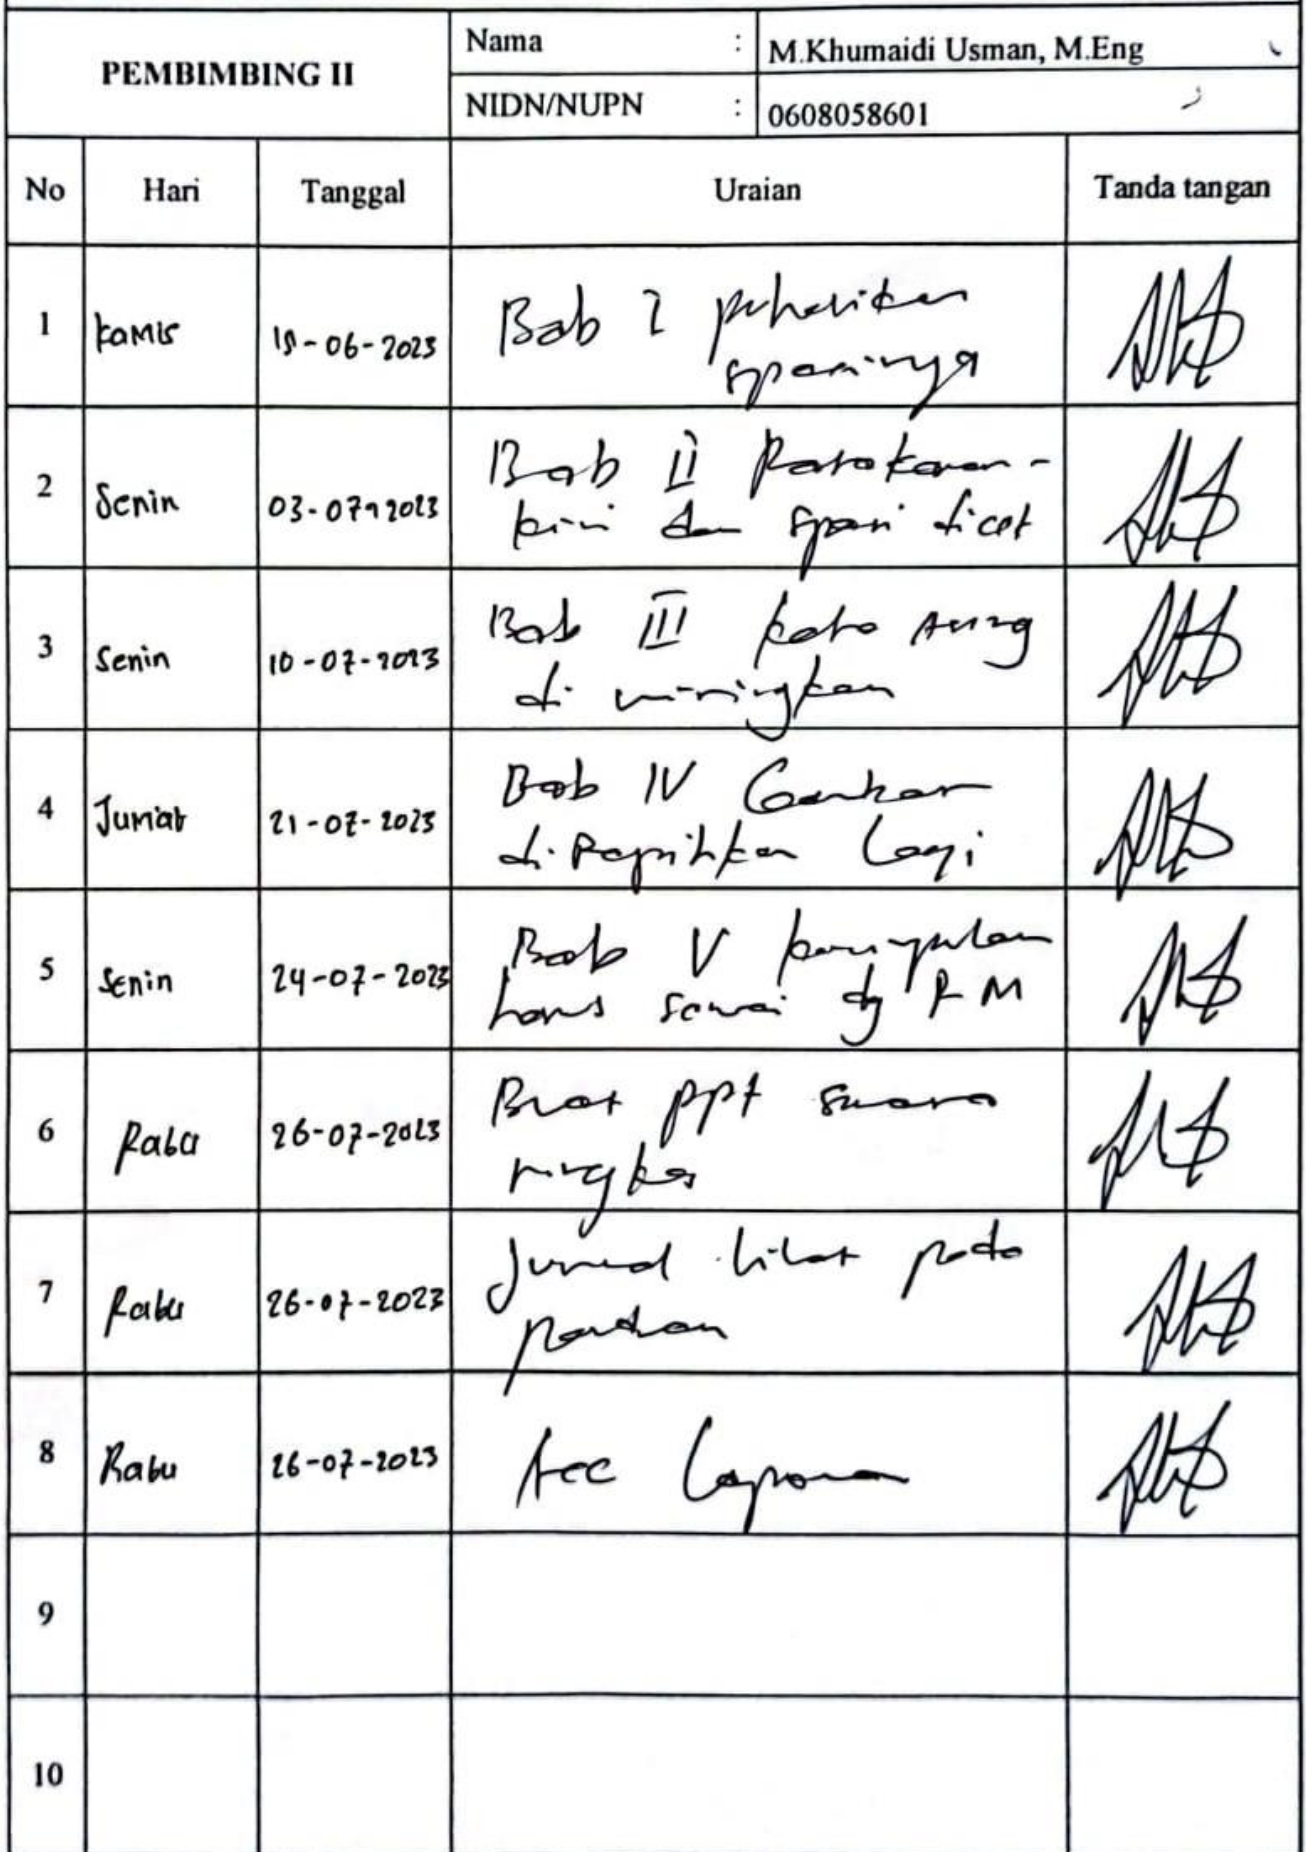 PEMBIMBING II
Nama : M.Khumaidi Usman, M.Eng
NIDN/NUPN : 0608058601
No Hari Tanggal Uraian Tanda tangan
1 Kamis 15-06-2023 Bab I perhatikan
spasinya
2 Senin 03-07-2023 Bab II Rata kanan-
kiri dan spasi dicek
3 Senin 10-07-2023 Bab III kata asing
di miringkan
4 Jumat 21-07-2023 Bab IV Gambar
di Rapihkan Lagi
5 Senin 24-07-2023 Bab V kesimpulan
harus sesuai dg RM
6 Rabu 26-07-2023 Buat ppt secara
ringkas
7 Rabu 26-07-2023 Jurnal lihat pada
panduan
8 Rabu 26-07-2023 Acc Laporan
9
10